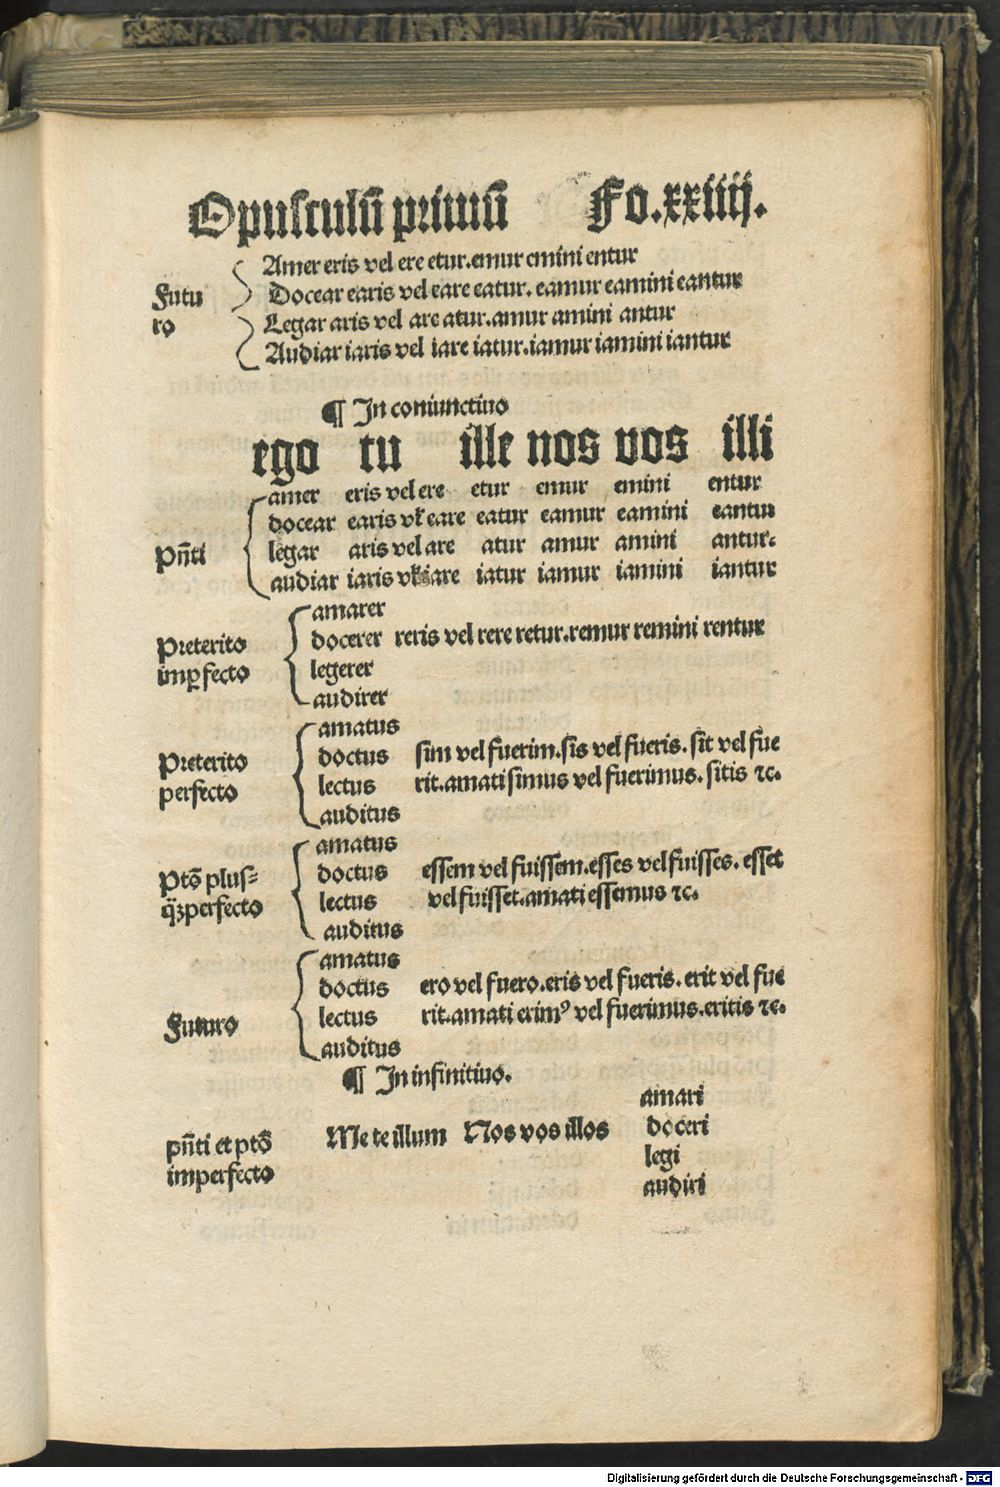 Opusculū primū Fo.xxiiij.
Amer eris vel ere etur.emur emini entur
Futu Docear earis vel eare eatur. eamur eamini eantur
ro Legar aris vel are atur.amur amini antur
Audiar iaris vel iare iatur.iamur iamini iantur
¶ In coniunctiuo
ego tu ille nos vos illi
amer eris vel ere etur emur emini entur
docear earis vl̕ eare eatur eamur eamini eantur
pn̄ti legar aris vel are atur amur amini antur.
audiar iaris vl̕ iare iatur iamur iamini iantur
amarer
Preterito docerer reris vel rere retur.remur remini rentur
imꝑfecto legerer
audirer
amatus
Preterito doctus sim vel fuerim.sis vel fueris.sit vel fue
perfecto lectus rit.amati simus vel fuerimus. sitis ⁊c.
auditus
amatus
Ptō plus⸗ doctus essem vel fuissem.esses vel fuisses. esset
q̄ꝫperfecto lectus vel fuisset.amati essemus ⁊c.
auditus
amatus
doctus ero vel fuero.eris vel fueris. erit vel fue
Futuro lectus rit.amati erimꝰ vel fuerimus.eritis ⁊c.
auditus
¶ In infinitiuo.
amari
pn̄ti et ptō Me te illum Nos vos illos doceri
imperfecto legi
audiri
Digitalisierung gefördert durch die Deutsche Forschungsgemeinschaft - DFG